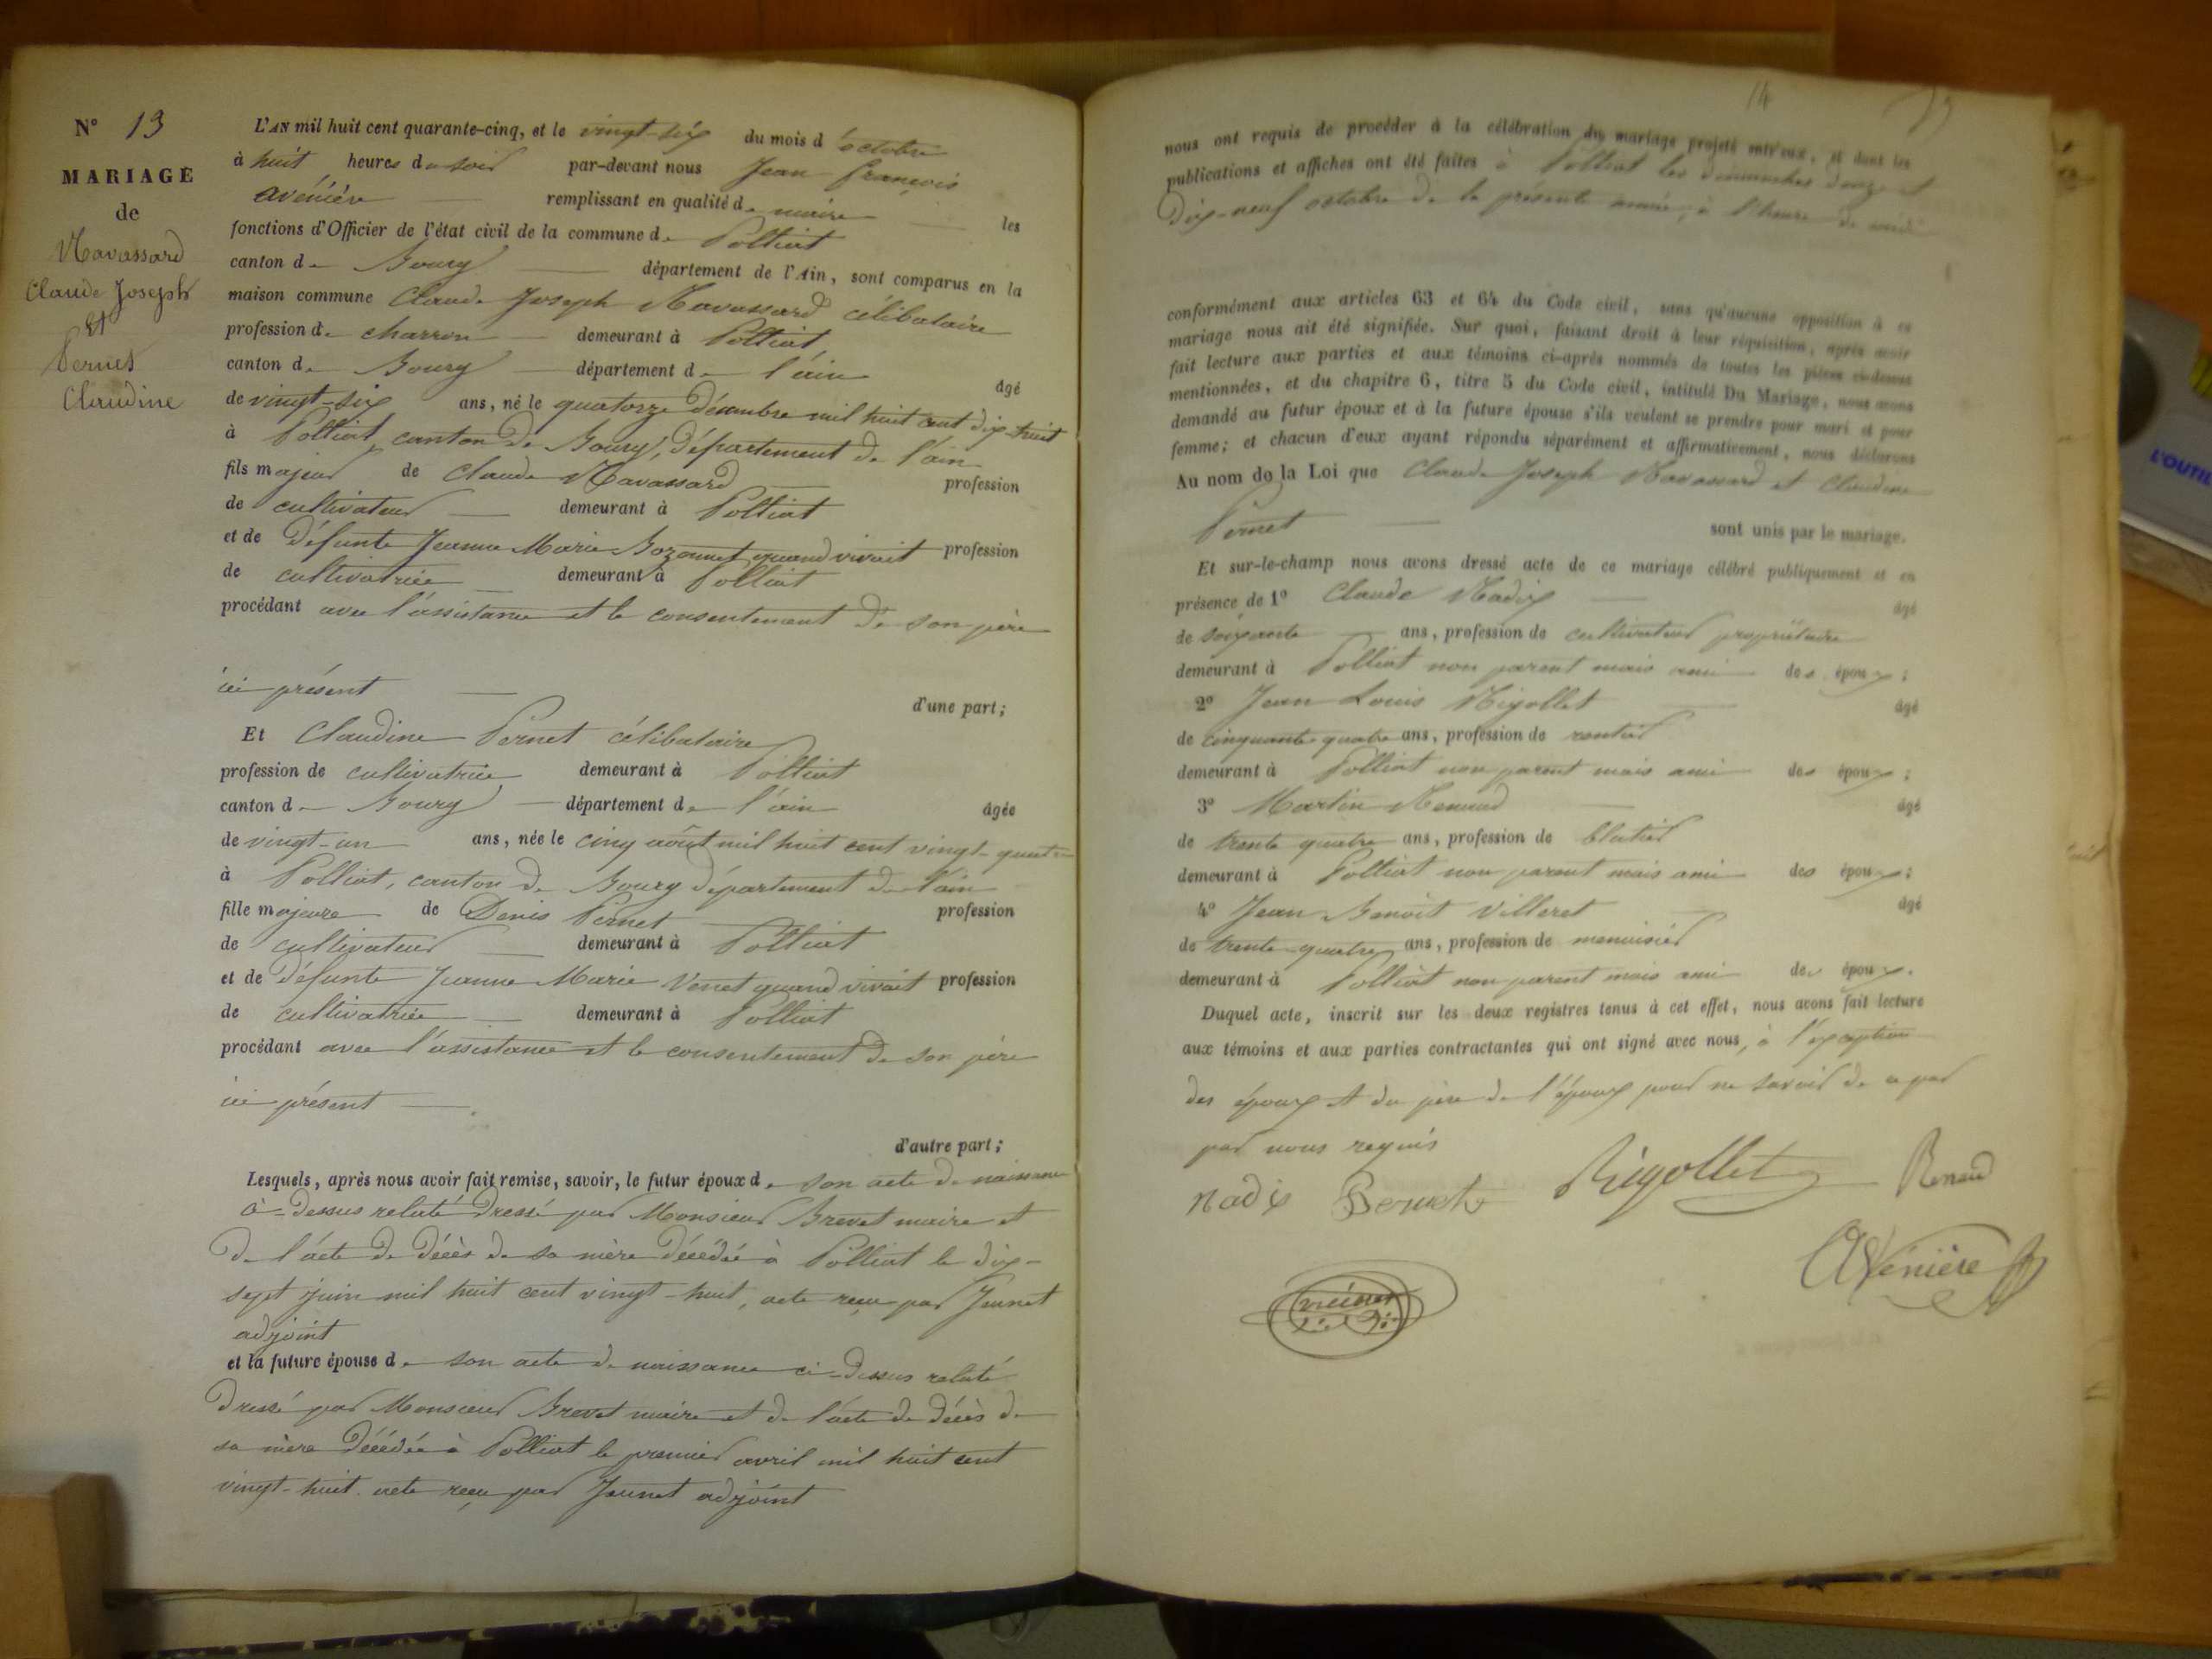 N° 13
MARIAGE
de
Navassard
Claude Joseph
Et
Pernet
Claudine
L'AN mil huit cent quarante-cinq, et le vingt-six du mois d'octobre
à huit heures du soir par-devant nous Jean François
avénière remplissant en qualité de maire les
fonctions d'Officier de l'état civil de la commune de Polliat
canton de Bourg département de l'Ain, sont comparus en la
maison commune Claude Joseph Navassard célibataire
profession de charron demeurant à Polliat
canton de Bourg département de l'ain âgé
de vingt-six ans, né le quatorze décembre mil huit cent dix-huit
à Polliat, canton de Bourg, département de l'ain
fils majeur de Claude Navassard profession
de cultivateur demeurant à Polliat
et de défunte Jeanne Marie Bozonnet quand vivait profession
de cultivatrice demeurant à Polliat
procédant avec l'assistance et le consentement de son père
ici présent
d'une part;
Et Claudine Pernet célibataire
profession de cultivatrice demeurant à Polliat
canton de Bourg département de l'ain âgée
de vingt-un ans, née le cinq août mil huit cent vingt-quatre
à Polliat, canton de Bourg département de l'ain
fille majeure de Denis Pernet profession
de cultivateur demeurant à Polliat
et de défunte Jeanne Marie Venet quand vivait profession
de cultivatrice demeurant à Polliat
procédant avec l'assistance et le consentement de son père
ici présent
d'autre part;
Lesquels, après nous avoir fait remise, savoir, le futur époux de son acte de naissance
ci-dessus relaté dressé par Monsieur Brevet maire et
de l'acte de décès de sa mère décédée à Polliat le dix-
sept juin mil huit cent vingt-huit, acte reçu par Jeunet
adjoint
et la future épouse de son acte de naissance ci-dessus relaté
dressé par Monsieur Brevet maire et de l'acte de décès de
sa mère décédée à Polliat le premier avril mil huit cent
vingt-huit acte reçu par Jeunet adjoint
14
nous ont requis de procéder à la célébration du mariage projeté entr'eux, et dont les
publications et affiches ont été faites à Polliat les dimanches douze et
dix-neuf octobre de la présente année, à l'heure de midi
conformément aux articles 63 et 64 du Code civil, sans qu'aucune opposition à ce
mariage nous ait été signifiée. Sur quoi, faisant droit à leur réquisition, après avoir
fait lecture aux parties et aux témoins ci-après nommés de toutes les pièces ci-dessus
mentionnées, et du chapitre 6, titre 5 du Code civil, intitulé Du Mariage, nous avons
demandé au futur époux et à la future épouse s'ils veulent se prendre pour mari et pour
femme; et chacun d'eux ayant répondu séparément et affirmativement, nous déclarons
Au nom de la Loi que Claude Joseph Navassard et Claudine
Pernet sont unis par le mariage.
Et sur-le-champ nous avons dressé acte de ce mariage célébré publiquement et en
présence de 1° Claude Nadix âgé
de soixante ans, profession de cultivateur propriétaire
demeurant à Polliat non parent mais ami des époux;
2° Jean Louis Rigollet âgé
de cinquante-quatre ans, profession de rentier
demeurant à Polliat non parent mais ami des époux;
3° Martin Renaud âgé
de trente quatre ans, profession de blatier
demeurant à Polliat non parent mais ami des époux;
4° Jean Benoit Villeret âgé
de trente-quatre ans, profession de menuisier
demeurant à Polliat non parent mais ami des époux.
Duquel acte, inscrit sur les deux registres tenus à cet effet, nous avons fait lecture
aux témoins et aux parties contractantes qui ont signé avec nous, à l'exception
des époux et du père de l'époux pour ne savoir de ce par
par nous requis
Nadix Pernet Rigollet Renaud
AVénière
L'OUTIL